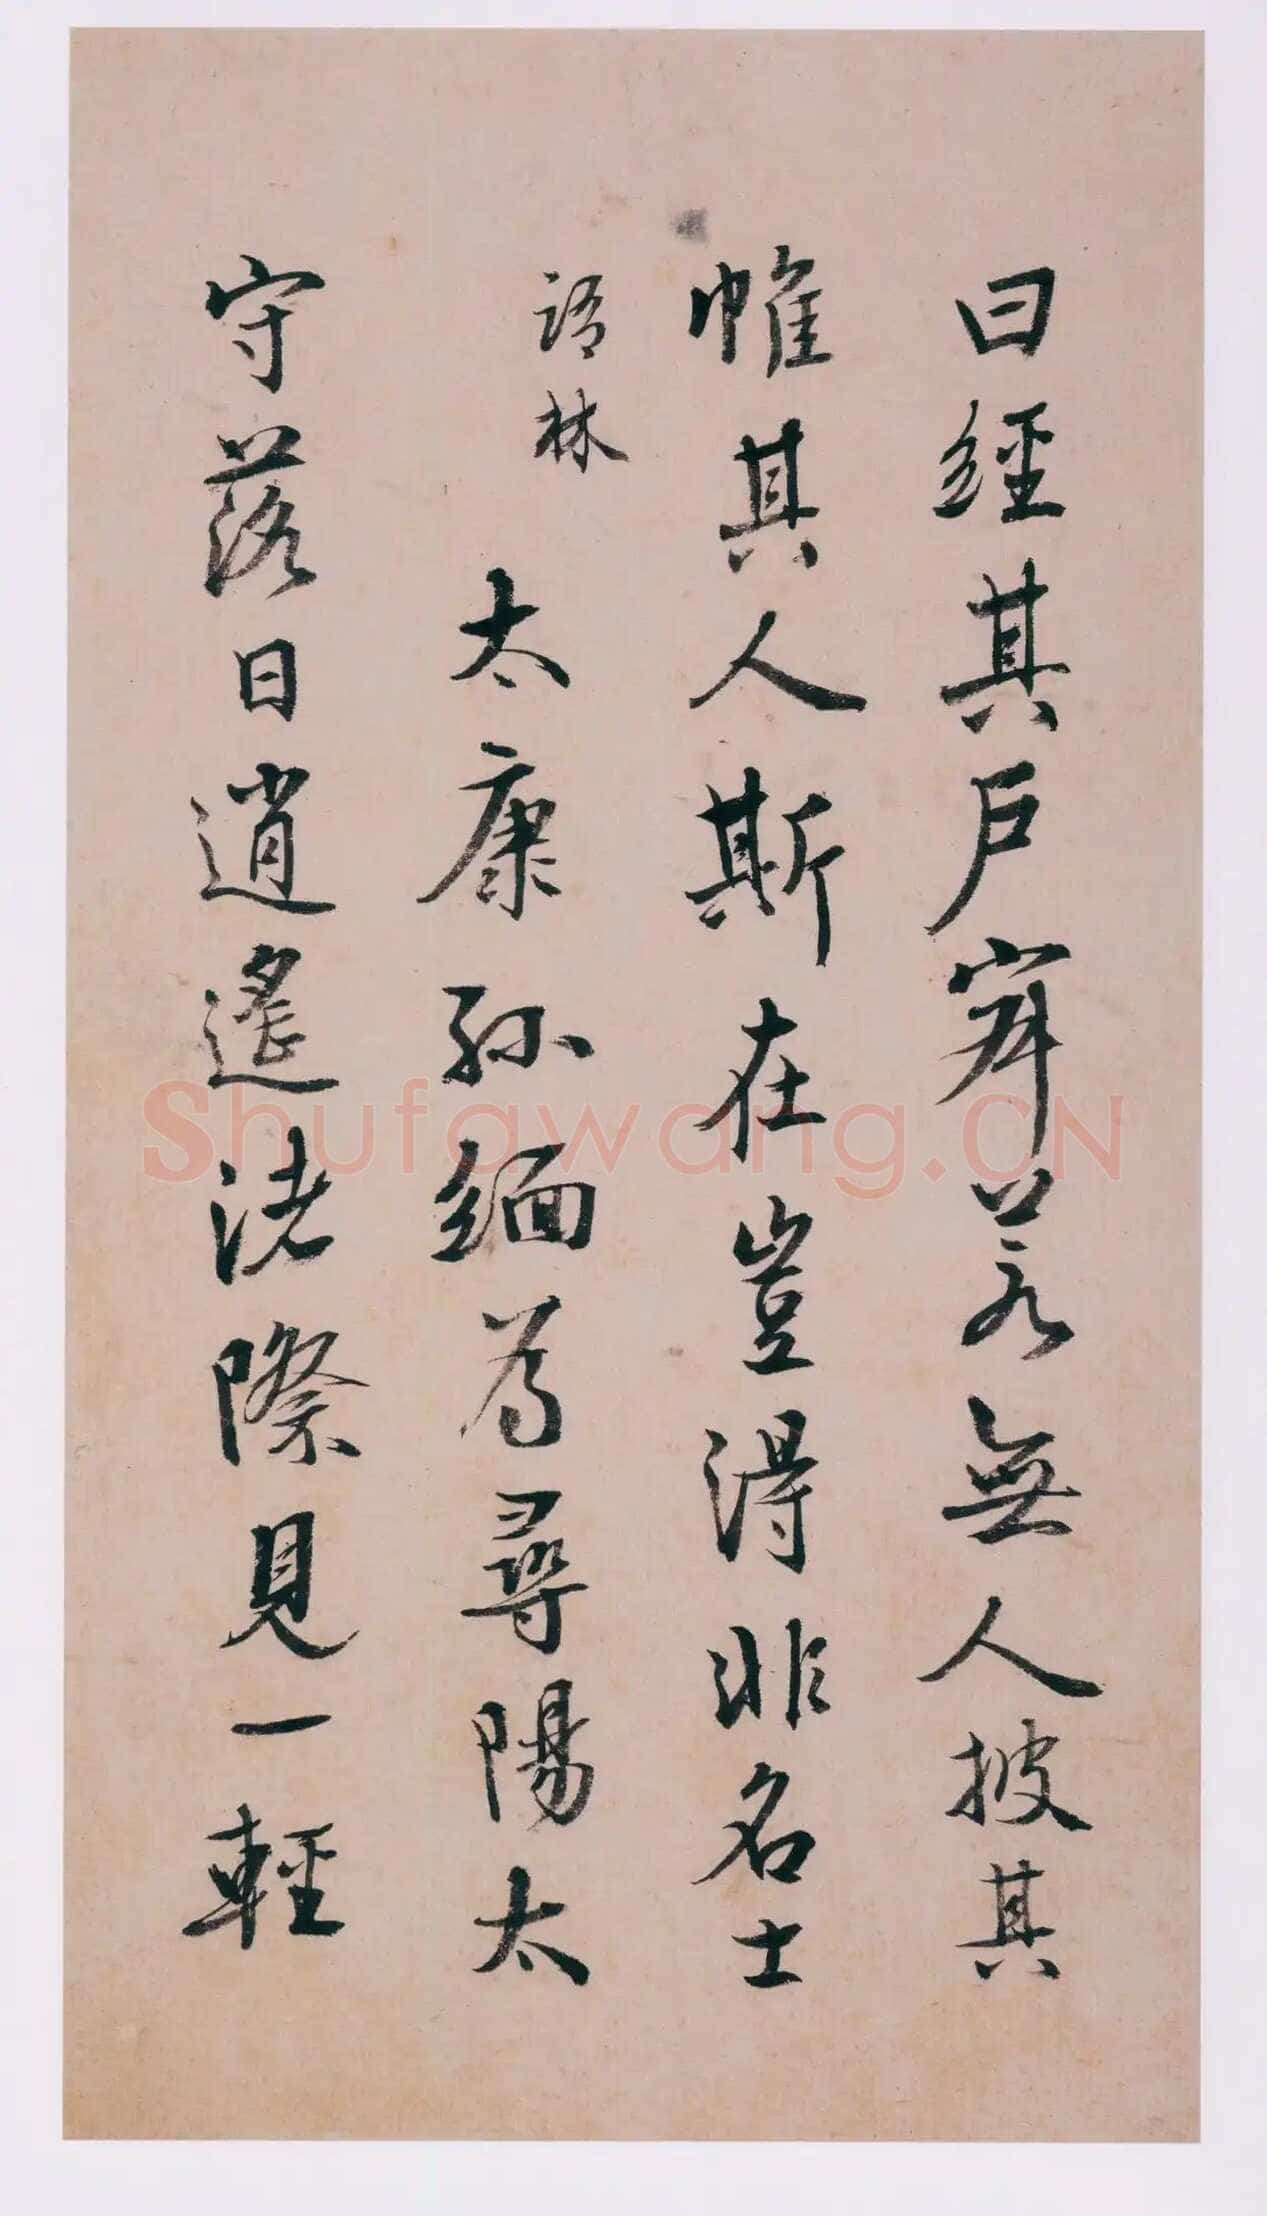 曰經其戶寂若無人披其
帷其人斯在豈得非名士
語林
太康孫緬為尋陽太
守落日逍遙渚際見一輕
Shufawang.CN